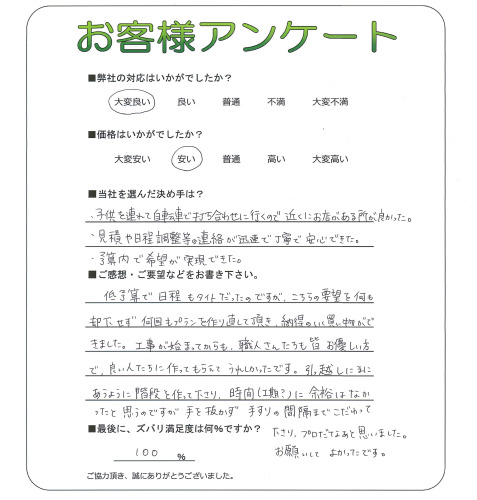 お客様アンケート
■弊社の対応はいかがでしたか？
大変良い 良い 普通 不満 大変不満
■価格はいかがでしたか？
大変安い 安い 普通 高い 大変高い
■当社を選んだ決め手は？
・子供を連れて自転車で打ち合わせに行くので近くにお店がある所が良かった。
・見積や日程調整等の連絡が迅速で丁寧で安心できた。
・予算内で希望が実現できた。
■ご感想・ご要望などをお書き下さい。
低予算で日程もタイトだったのですが、こちらの要望を何も
却下せず何回もプランを作り直して頂き、納得のいく買い物がで
きました。工事が始まってからも、職人さんたちも皆お優しい方
で、良い人たちに作ってもらえてうれしかったです。引越しに間に
あうように階段を作って下さり、時間(工期?)に余裕はなか
ったと思うのですが手を抜かず手すりの間隔までこだわって
下さり、プロだなあと思いました。
お願いして よかったです。
■最後に、ズバリ満足度は何％ですか？
100 %
ご協力頂き、誠にありがとうございました。